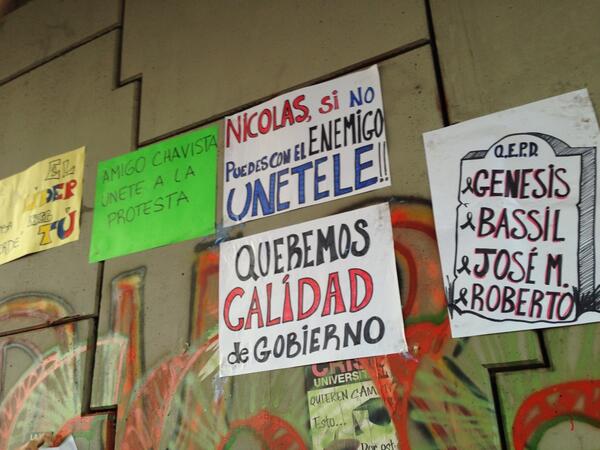 EL
LÍDER
ERES
TÚ
AMIGO CHAVISTA
ÚNETE A LA
PROTESTA
NICOLAS, Si NO
PUEDES CON EL ENEMIGO
UNETELE!!
QUEREMOS
CALÍDAD
de GOBIERNO
Q.E.P.D.
GENESIS
BASSIL
JOSÉ M.
ROBERTO
UNIVERSIT
QUIEREN CAM
Esto...
Por est